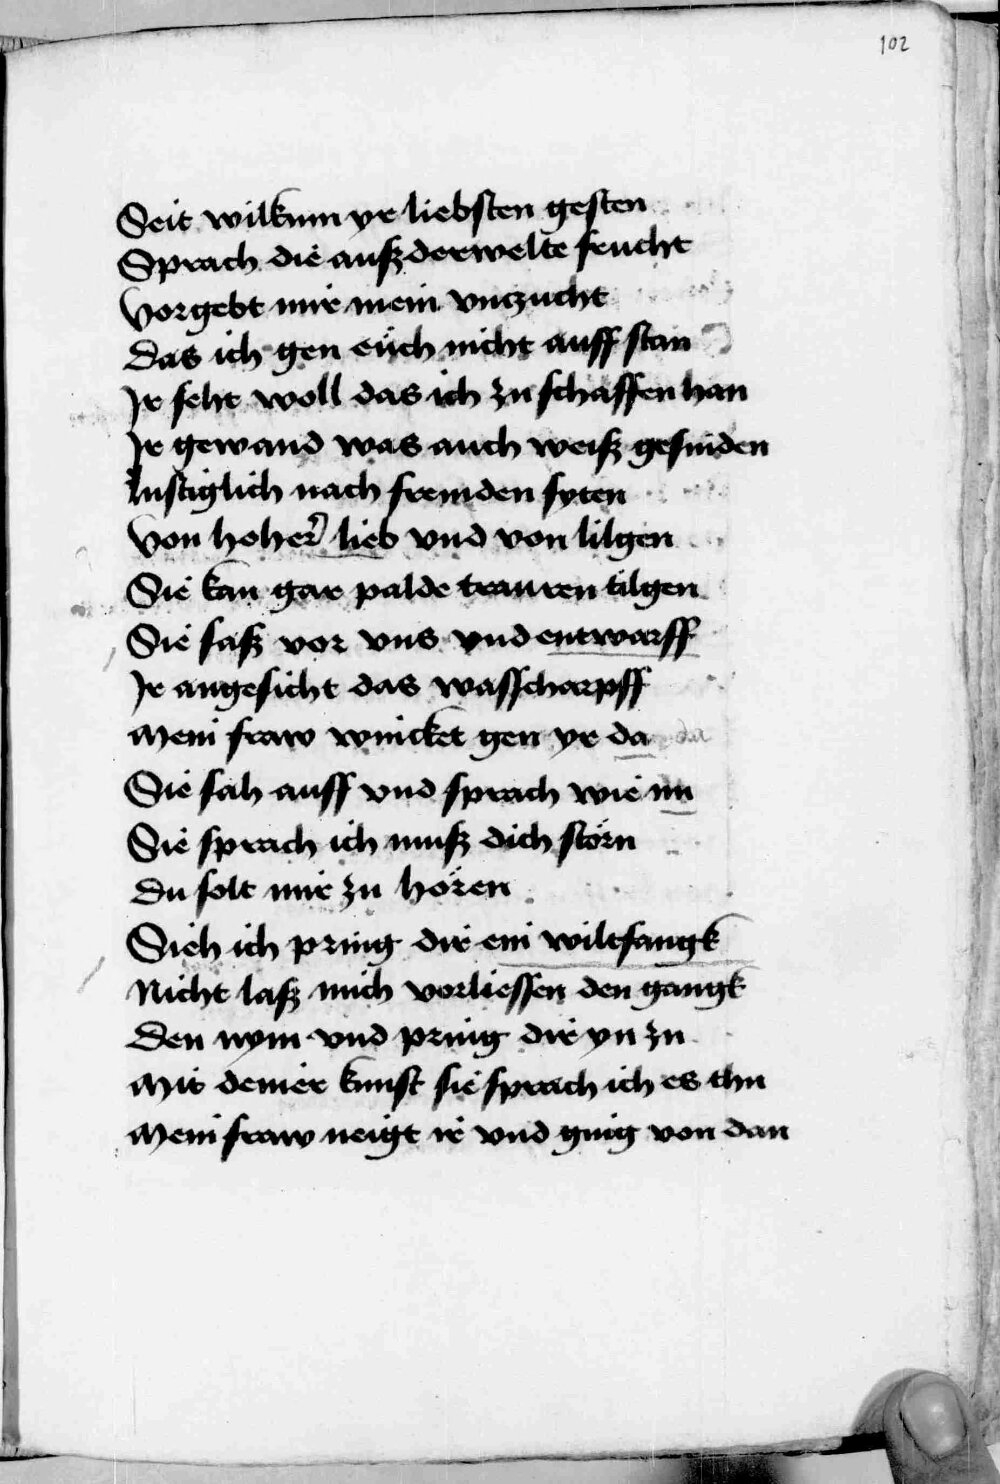 102
Seit wilkum yr liebsten gesten
Sprach die außderwelte frucht
Vorgebt mir mein vnczucht
Das ich gen euch nicht auff stan
Ir seht woll das ich zu schaffen han
Ir gewand was auch weiß gesniden
lustiglich nach fremden syten
Von hoher lieb vnd von lilgen
Sie kan gar palde trauren tilgen
Sie saß vor vns vnd entwarff
Ir angesicht das was scharpff
Mein fraw wincket gen yr da
Sie sah auff vnd sprach wie nu
Sie sprach ich muß dich störn
Du solt mir zu hören
Sieh ich pring dir ein wiltfangk
Nicht laß mich vorliessen den gangk
Den nym vnd pring dir yn zu
Mit deiner kunst sie sprach ich es thu
Mein fraw neigt ir vnd ging von dan